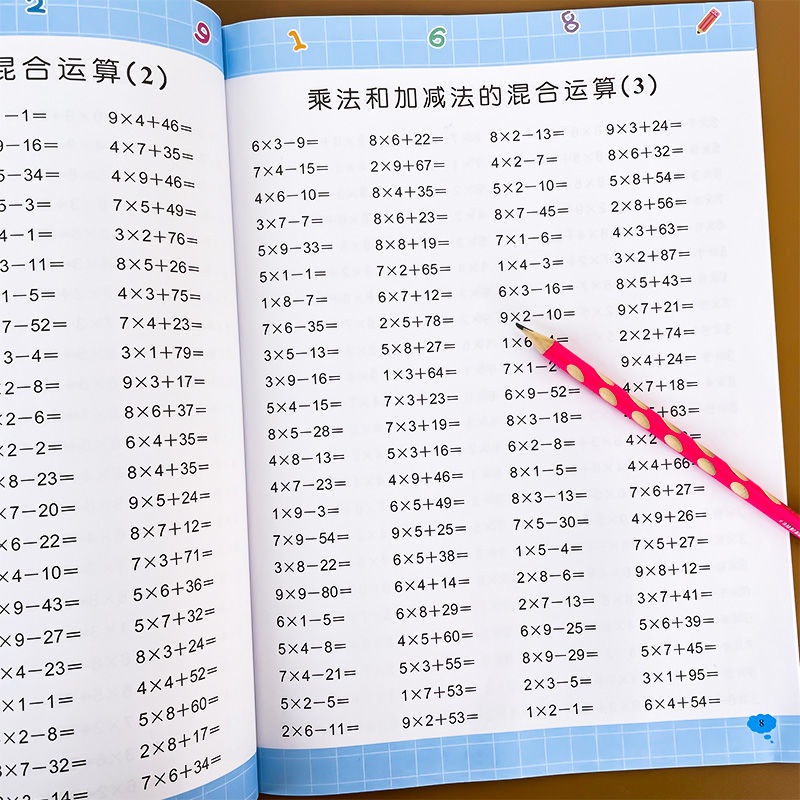 2
9
混合运算(2)
-1= 9×4+46=
9-16= 4×7+35=
5-34= 4×9+46=
5-3= 7×5+49=
4-1= 3×2+76=
3-11= 8×5+26=
1-5= 4×3+75=
7-52= 7×4+23=
3-4= 3×1+79=
×2-8= 9×3+17=
×2-6= 8×6+37=
×2-2= 6×4+35=
×8-23= 8×4+35=
×7-20= 9×5+24=
×6-22= 8×7+12=
×4-10= 7×3+71=
×9-43= 5×6+36=
×9-27= 5×7+32=
×4-23= 8×3+24=
×1-1= 4×4+52=
×2-8= 5×8+60=
×7-32= 2×8+17=
3-14= 7×6+34=
1 6 8
乘法和加减法的混合运算(3)
6×3-9= 8×6+22= 8×2-13= 9×3+24=
7×4-15= 2×9+67= 4×2-7= 8×6+32=
4×6-10= 8×4+35= 5×2-10= 5×8+54=
3×7-7= 8×6+23= 8×7-45= 2×8+56=
5×9-33= 8×8+19= 7×1-6= 4×3+63=
5×1-1= 7×2+65= 1×4-3= 3×2+87=
1×8-7= 6×7+12= 6×3-16= 8×5+43=
7×6-35= 2×5+78= 9×2-10= 9×7+21=
3×5-13= 5×8+27= 1×6 4= 2×2+74=
3×9-16= 1×3+64= 7×1-2 9×4+24=
5×4-15= 7×3+23= 6×9-52= 4×7+18=
8×5-28= 7×3+19= 8×3-18= +63=
4×8-13= 5×3+16= 6×2-8= 4×2
4×7-23= 4×9+46= 8×1-5= 4×4+66
1×9-3= 6×5+49= 8×3-13= 7×6+27=
7×9-54= 9×5+25= 7×5-30= 4×9+26=
3×8-22= 6×5+38= 1×5-4= 7×5+27=
9×9-80= 6×4+14= 2×8-6= 9×8+12=
6×1-5= 6×8+29= 2×7-13= 3×7+41=
5×4-8= 4×5+60= 6×9-25= 5×6+39=
7×4-21= 5×3+55= 8×9-29= 5×7+45=
5×2-5= 1×7+53= 2×3-5= 3×1+95=
2×6-11= 9×2+53= 1×2-1= 6×4+54=
8